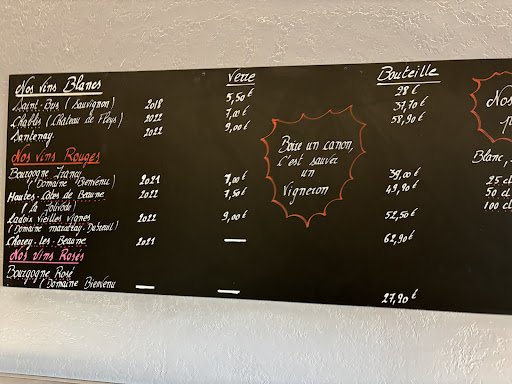 Nos vins Blancs Verre Bouteille
Saint-Bris (Sauvignon) 2018 5,50 € 28 €
Chablis (Château de Fleys) 2022 7,00 € 37,70 €
Santenay 2022 9,00 € 58,90 €
Nos vins Rouges
Bourgogne Irancy
(Domaine Bienvenu) 2021 7,00 € 39,00 €
Hautes-Côtes de Beaune 2022 7,50 € 49,90 €
Ladoix Vieilles vignes 2022 9,00 € 52,50 €
Chorey-les-Beaune 2021 — 62,90 €
Nos vins Rosés
Bourgogne Rosé
(Domaine Bienvenu — — 27,90 €
Boire un canon,
C'est sauver
un
Vigneron
Nos
Blanc,
25 cl
50 cl
100 cl